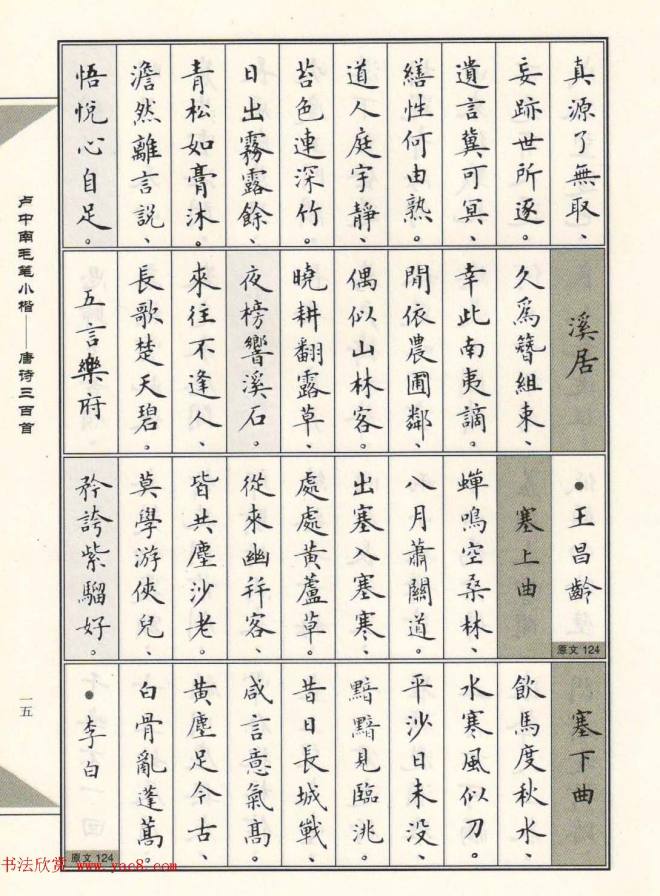 真源了無取、
妄跡世所逐。
遺言冀可冥、
繕性何由熟。
道人庭宇靜、
苔色連深竹。
日出霧露餘、
青松如膏沐。
澹然離言說、
悟悅心自足。
溪居
久爲簪組束、
幸此南夷謫。
閒依農圃鄰、
偶似山林客。
曉耕翻露草、
夜榜響溪石。
來往不逢人、
長歌楚天碧。
五言樂府
•王昌齡
原文 124
塞上曲
蟬鳴空桑林、
八月蕭關道。
出塞入塞寒、
處處黃蘆草。
從來幽幷客、
皆共塵沙老。
莫學游俠兒、
矜誇紫騮好。
塞下曲
飲馬度秋水、
水寒風似刀。
平沙日未没、
黯黯見臨洮。
昔日長城戰、
咸言意氣高。
黃塵足今古、
白骨亂蓬蒿。
•李白
原文 124
卢中南毛笔小楷——唐诗三百首
一五
书法欣赏 www.yac8.com